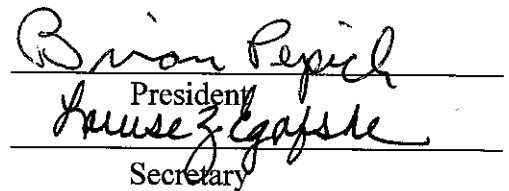 Brian Pepich
President
Louise
Secretary